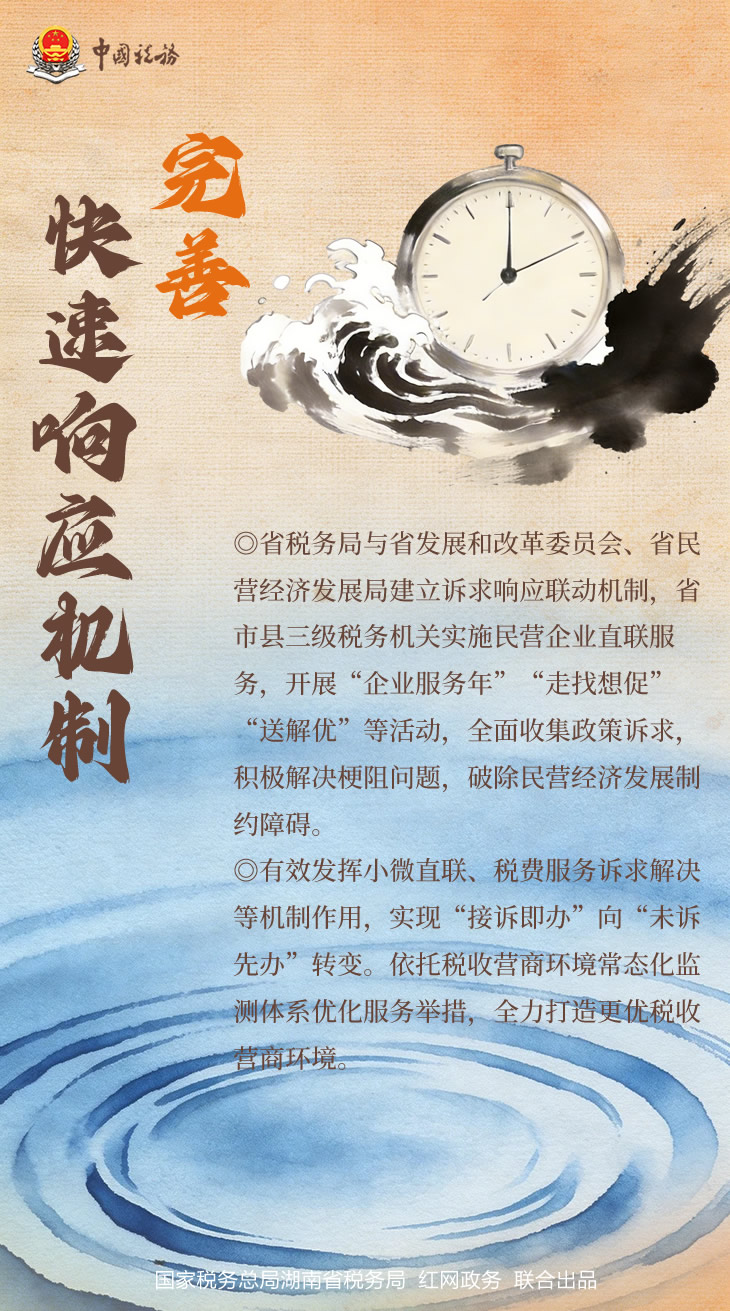 中國税務
完善
快速响应机制
◎省税务局与省发展和改革委员会、省民
营经济发展局建立诉求响应联动机制，省
市县三级税务机关实施民营企业直联服
务，开展“企业服务年”“走找想促”
“送解优”等活动，全面收集政策诉求，
积极解决梗阻问题，破除民营经济发展制
约障碍。
◎有效发挥小微直联、税费服务诉求解决
等机制作用，实现“接诉即办”向“未诉
先办”转变。依托税收营商环境常态化监
测体系优化服务举措，全力打造更优税收
营商环境。
国家税务总局湖南省税务局 红网政务 联合出品